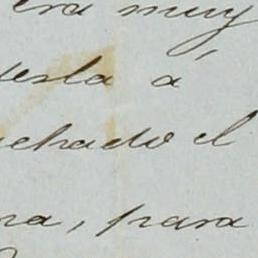 era muy
esta á
echado el
na, para